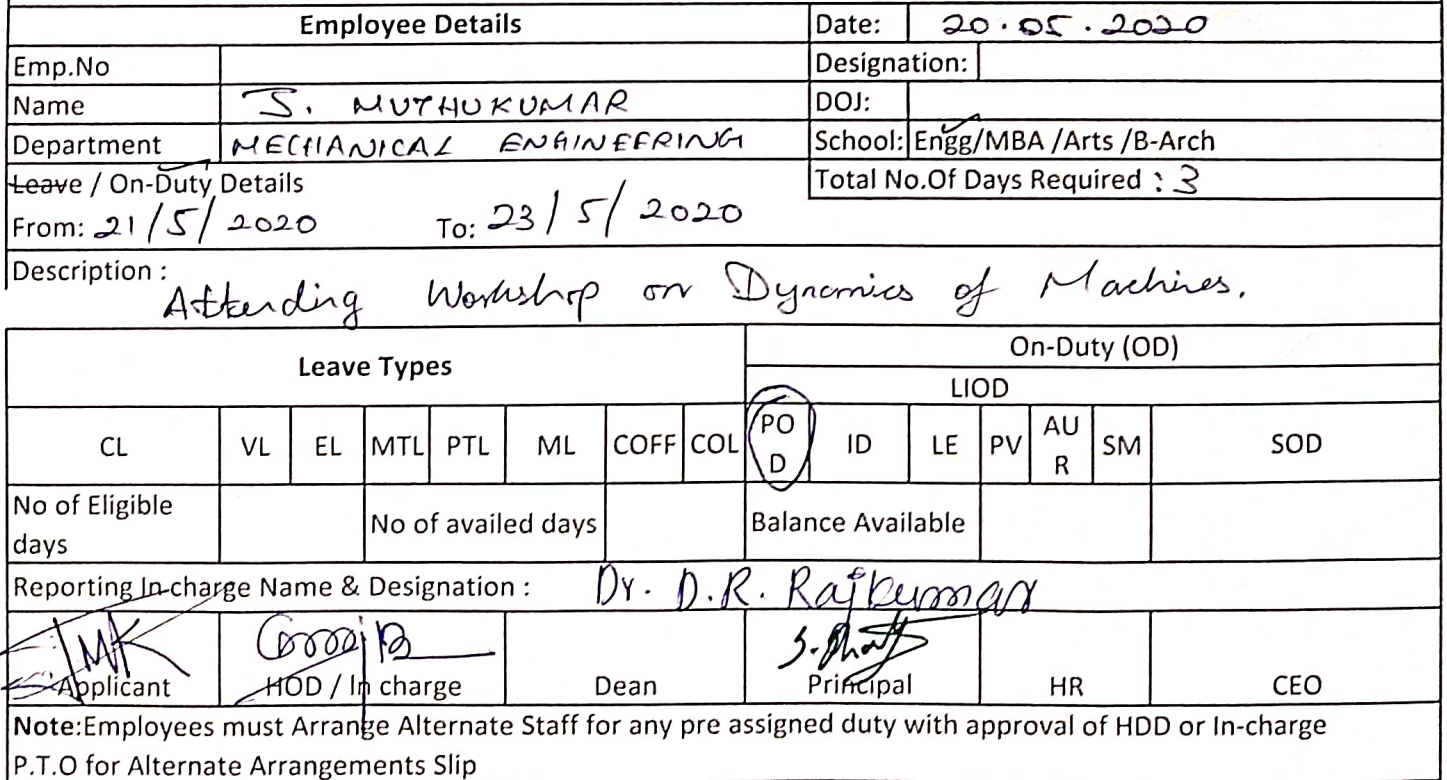 Employee Details Date: 20.05.2020
Emp.No Designation:
Name J. MUTHUKUMAR DOJ:
Department MECHANICAL ENGINEERING School: Engg/MBA /Arts /B-Arch
Leave / On-Duty Details Total No.Of Days Required : 3
From: 21/5/2020 To: 23/5/2020
Description :
Attending Workshop on Dynamics of Machines.
Leave Types On-Duty (OD)
LIOD
CL VL EL MTL PTL ML COFF COL POD ID LE PV AUR SM SOD
No of Eligible days No of availed days Balance Available
Reporting In-charge Name & Designation : Dr. D.R. Rajkumar
Applicant HOD / In charge Dean Principal HR CEO
Note:Employees must Arrange Alternate Staff for any pre assigned duty with approval of HDD or In-charge
P.T.O for Alternate Arrangements Slip